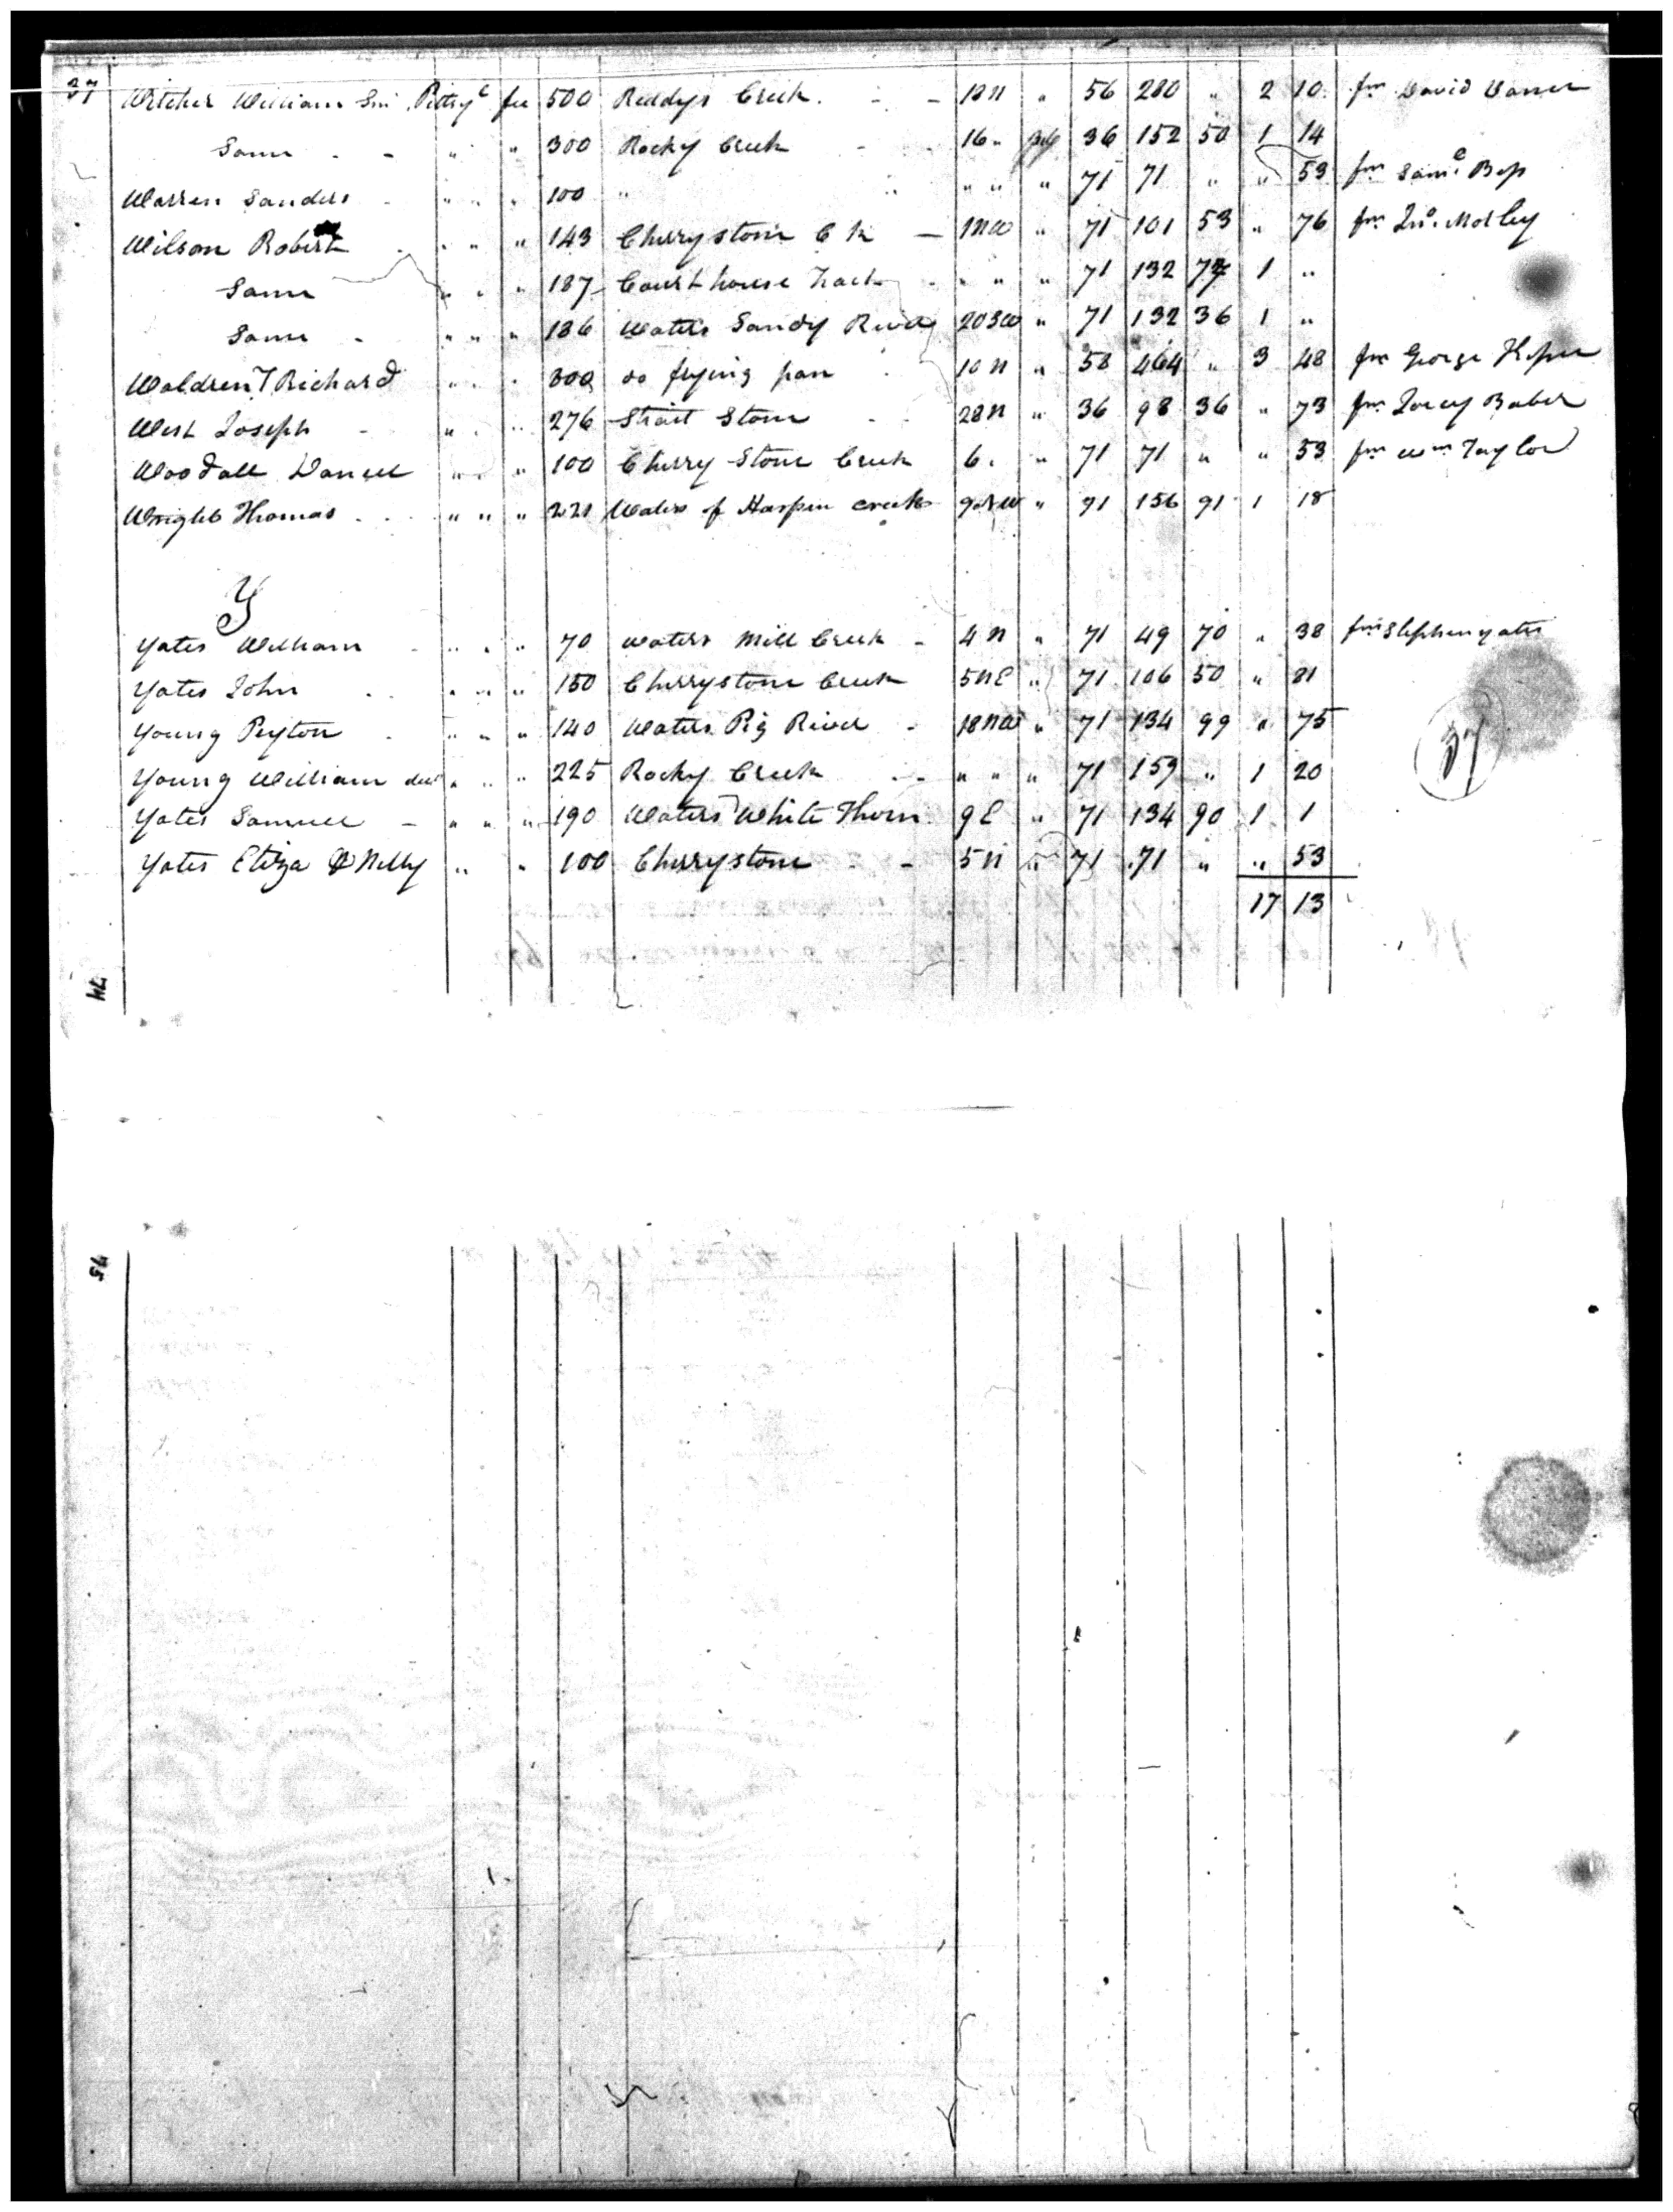 37 Witcher William Snr Pittsyᵉ fee 500 Reddys Creek. - - 13 N " 56 280 " 2 10 fm David
Same - - " " 300 Rocky Creek - 16 " 36 152 50 1 14
Warren Sanders - " " " 100 " " " " " 71 71 " " 53 fm Samˡ Bess
Wilson Robert . " " " 143 Cherrystone C k - 1 NW " 71 101 53 " 76 fm Jnº. Motley
Same " " " 187 Courthouse Tract - " " " 71 132 77 1 "
Same - " " " 186 Waters Sandy River 20 SW " 71 132 36 1 "
Waldren Richard " " " 300 do frying pan 10 N " 58 464 " 3 48 fm George
West Joseph - " " " 276 Strait Stone - - 28 N " 36 98 36 " 73 fm Baber
Woodall Daniel " " " 100 Cherry Stone Creek 6 . " 71 71 " " 53 fm Wm Taylor
Wright Thomas . . " " " 221 Waters of Harpin creek 9 NW " 71 156 91 1 18
Y
Yates William - " " " 70 Waters Mill Creek - 4 N " 71 49 70 " 38 fm Stephen yates
Yates John . . " " " 150 Cherrystone Creek 5 NE " 71 106 50 " 81
Young Peyton . " " " 140 Waters Pig River - 18 NW " 71 134 99 " 75
Young William decd " " " 225 Rocky Creek - - " " " 71 159 " 1 20
37
Yates Samuel - " " " 190 Waters White Thorn 9 E " 71 134 90 1 1
Yates Eliza & Nelly " " 100 Cherrystone - - 5 N " 71 71 " " 53
17 13
74
75